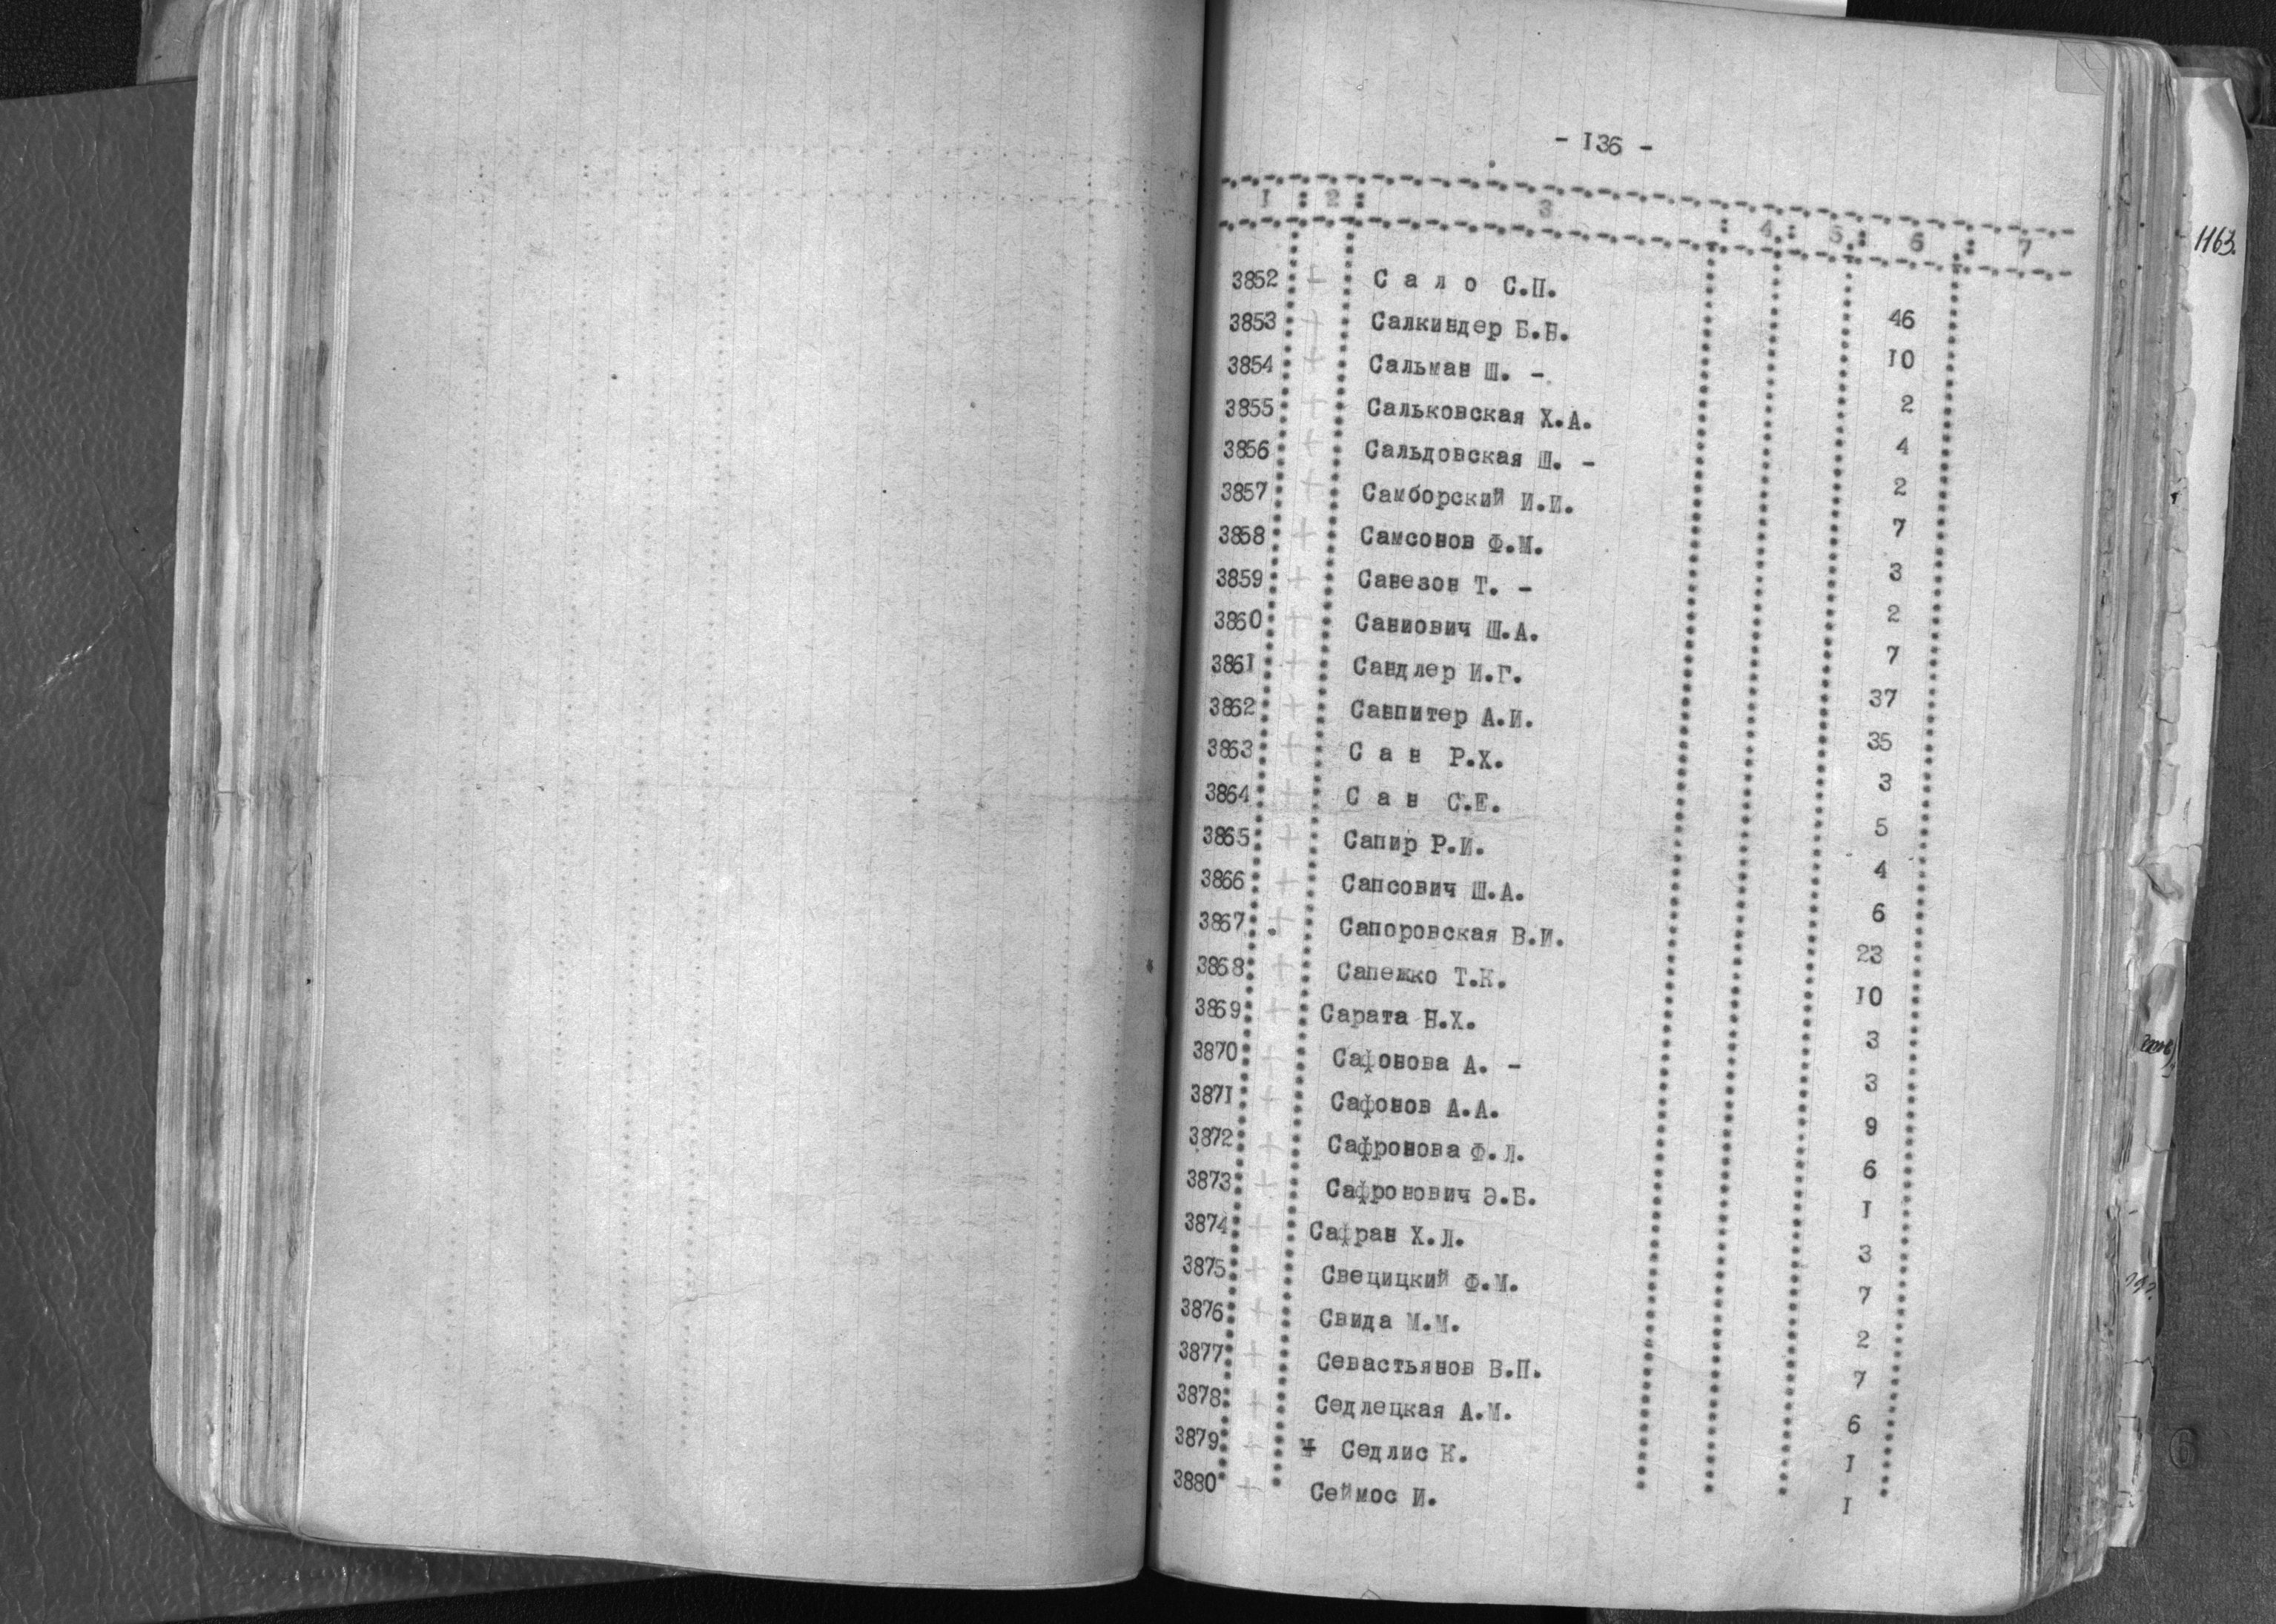 - 136 -
1 : 2 : 3 : 4 : 5 : 6 : 7
1163.
3852 + С а л о С.П. 46
3853 + Салкиндер Б.Н. 10
3854 + Сальман Ш. - 2
3855 + Сальковская Х.А. 4
3856 + Сальдовская Ш. - 2
3857 + Самборский И.И. 7
3858 + Самсонов Ф.М. 3
3859 + Санезон Т. - 2
3860 + Саниович Ш.А. 7
3861 + Сандлер И.Г. 37
3862 + Санпитер А.И. 35
3863 + С а н Р.Х. 3
3864 + С а н С.Е. 5
3865 + Сапир Р.И. 4
3866 + Сапсович Ш.А. 6
3867 + Сапоровская В.И. 23
3868 + Сапежко Т.К. 10
3869 + Сарата Н.Х. 3
3870 + Сафонова А. - 3
3871 + Сафонов А.А. 9
3872 + Сафронова Ф.Л. 6
3873 + Сафронович Э.Б. 1
3874 + Сафран Х.Л. 3
3875 + Свецицкий Ф.М. 7
3876 + Свида М.М. 2
3877 + Севастьянов В.П. 7
3878 + Седлецкая А.М. 6
3879 + Седлис К. 1
3880 + Сеймос И. 1